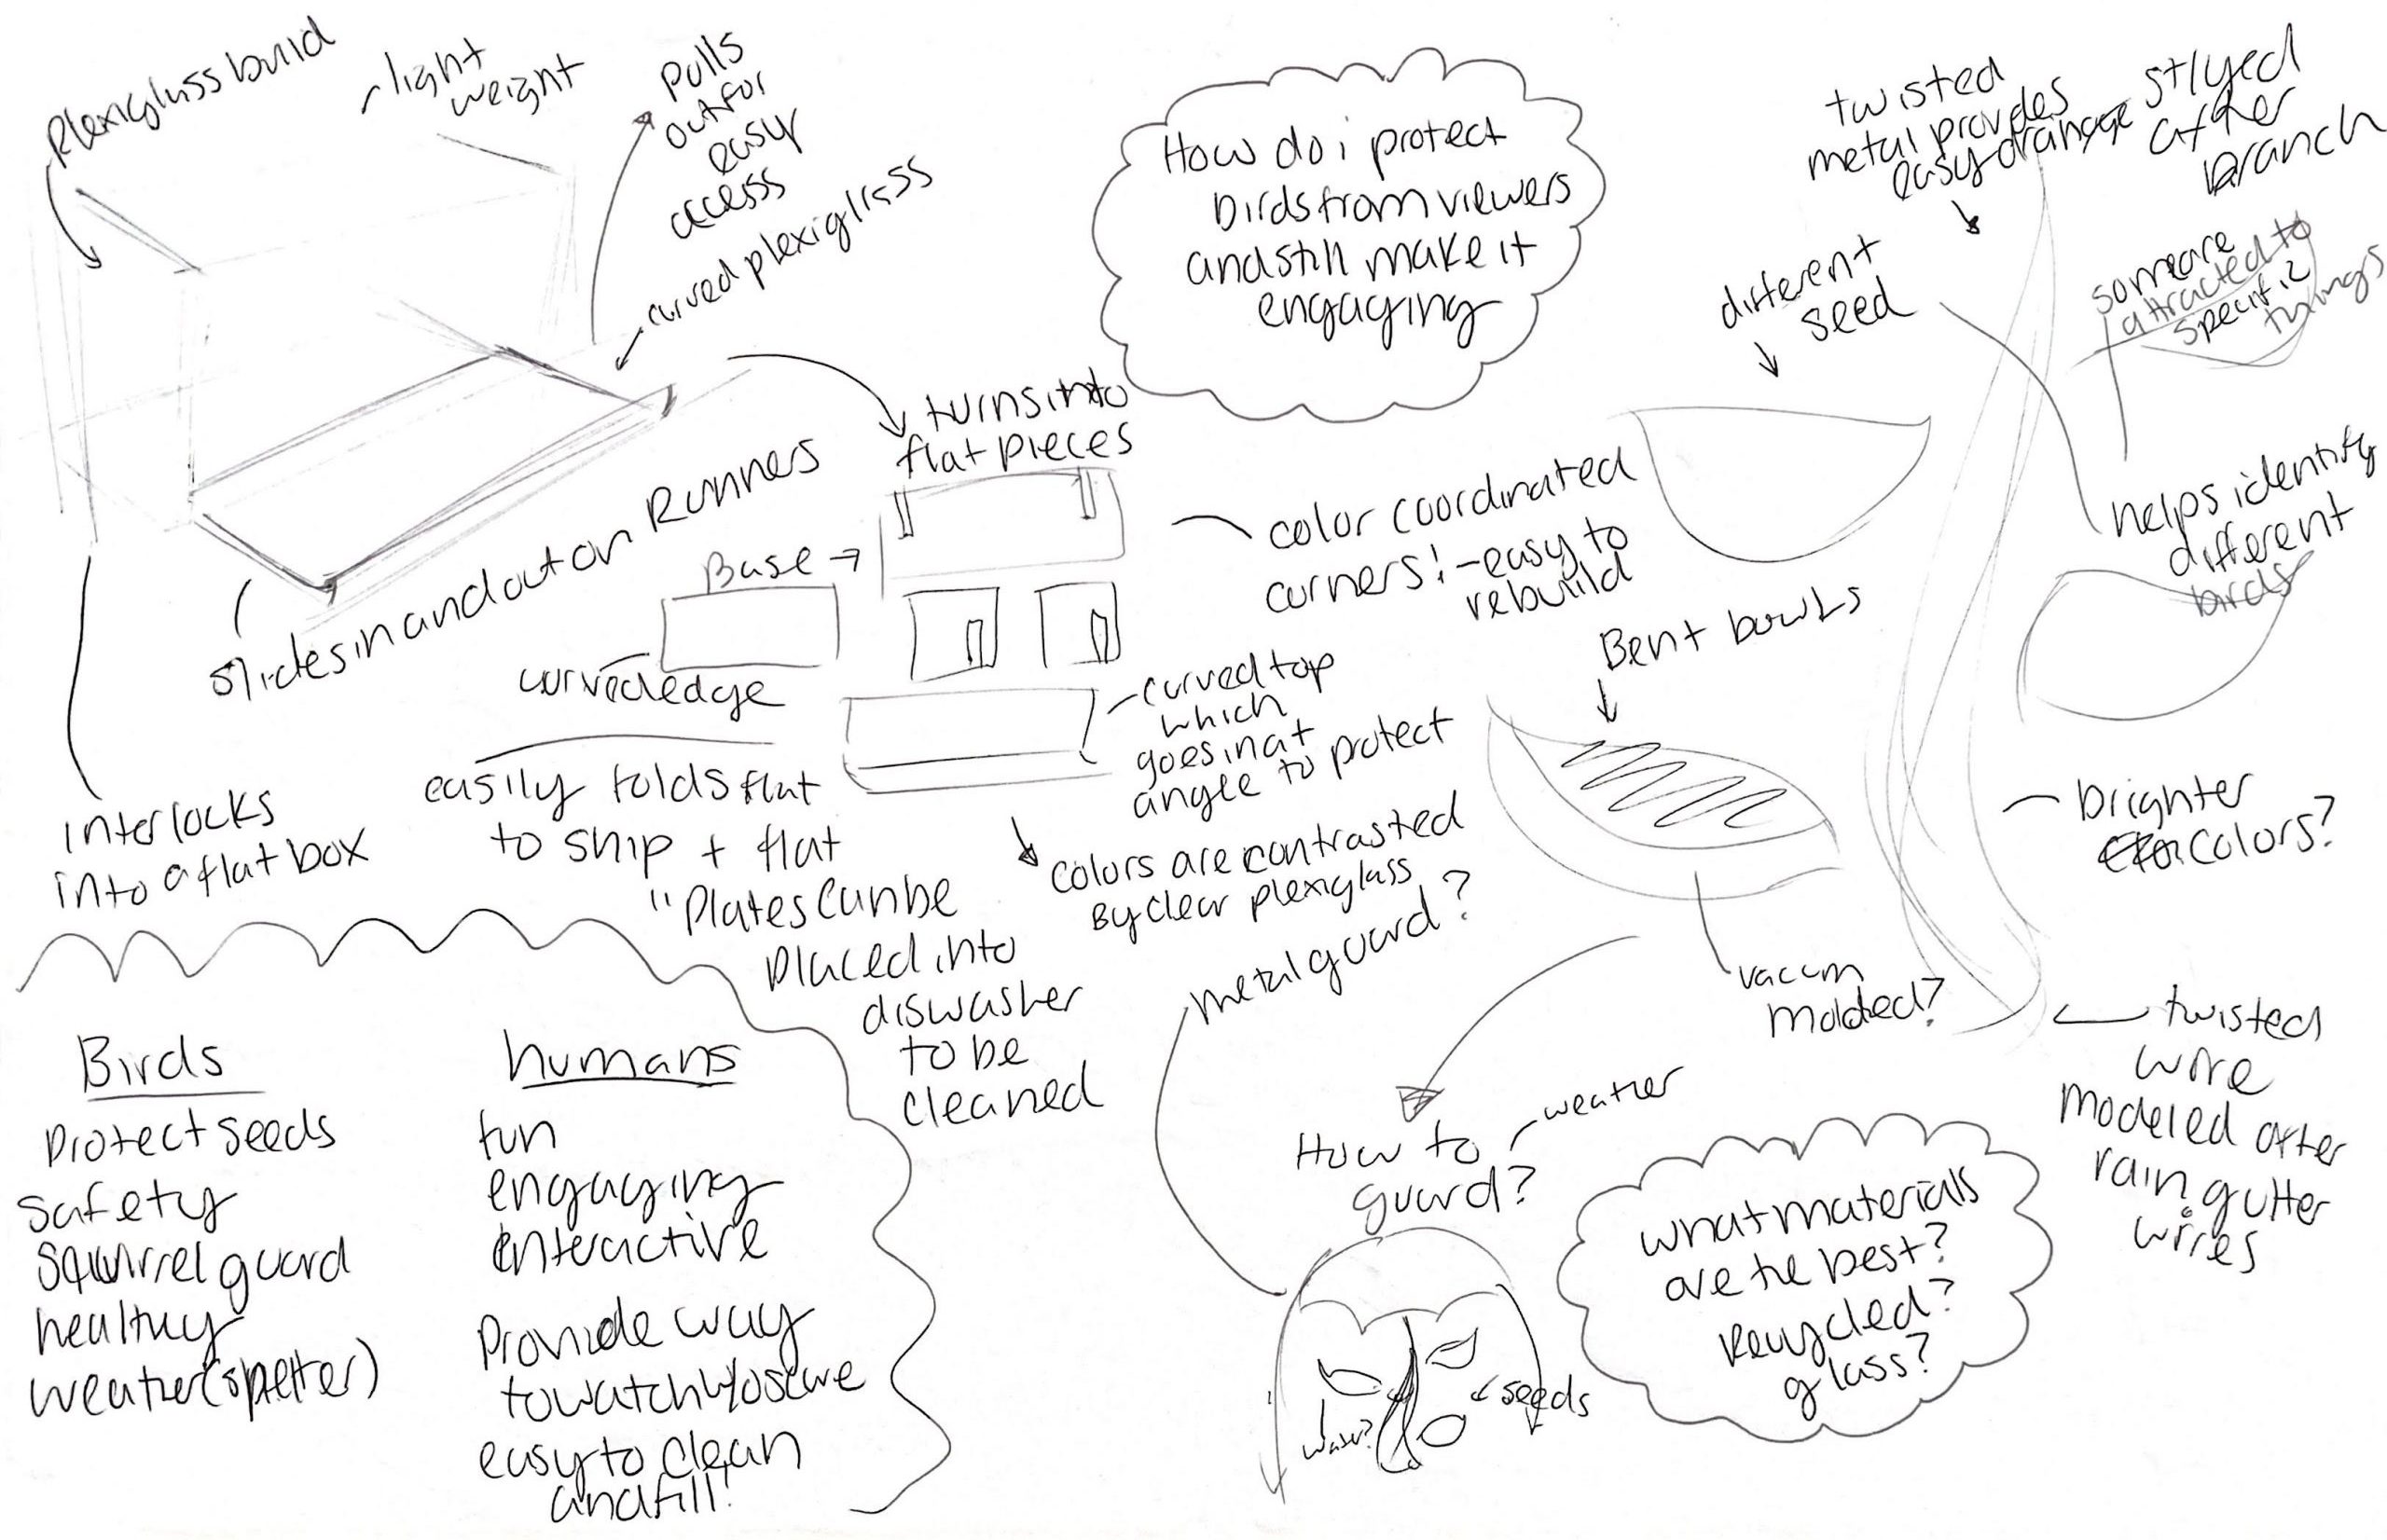 Plexiglass build
light
weight
pulls
out for
easy
access
curved plexigliss
slides in and out on Runners
Interlocks
into a flat box
turns into
flat pieces
Base
curved edge
color coordinated
corners! - easy to
rebuild
curved top
which
goes in at
angle to protect
easily folds flat
to ship + flat
"Plates can be
placed into
diswasher
to be
cleaned
colors are contrasted
By clear plexiglass
How do i protect
birds from viewers
and still make it
engaging
twisted
metal provides
easy dranage
stlyed
after
branch
different
seed
some are
attracted to
specific
things
helps identify
different
birds
Bent bowls
brighter
colors?
vaccum
molded?
twisted
wire
modeled after
rain gutter
wires
metal guard?
How to
guard?
weather
seeds
what materials
are the best?
Recycled?
glass?
Birds
Protect seeds
Safety
Squirrel guard
healthy
weather
humans
fun
engaging
interactive
Provide way
to watch
easy to clean
and fill!